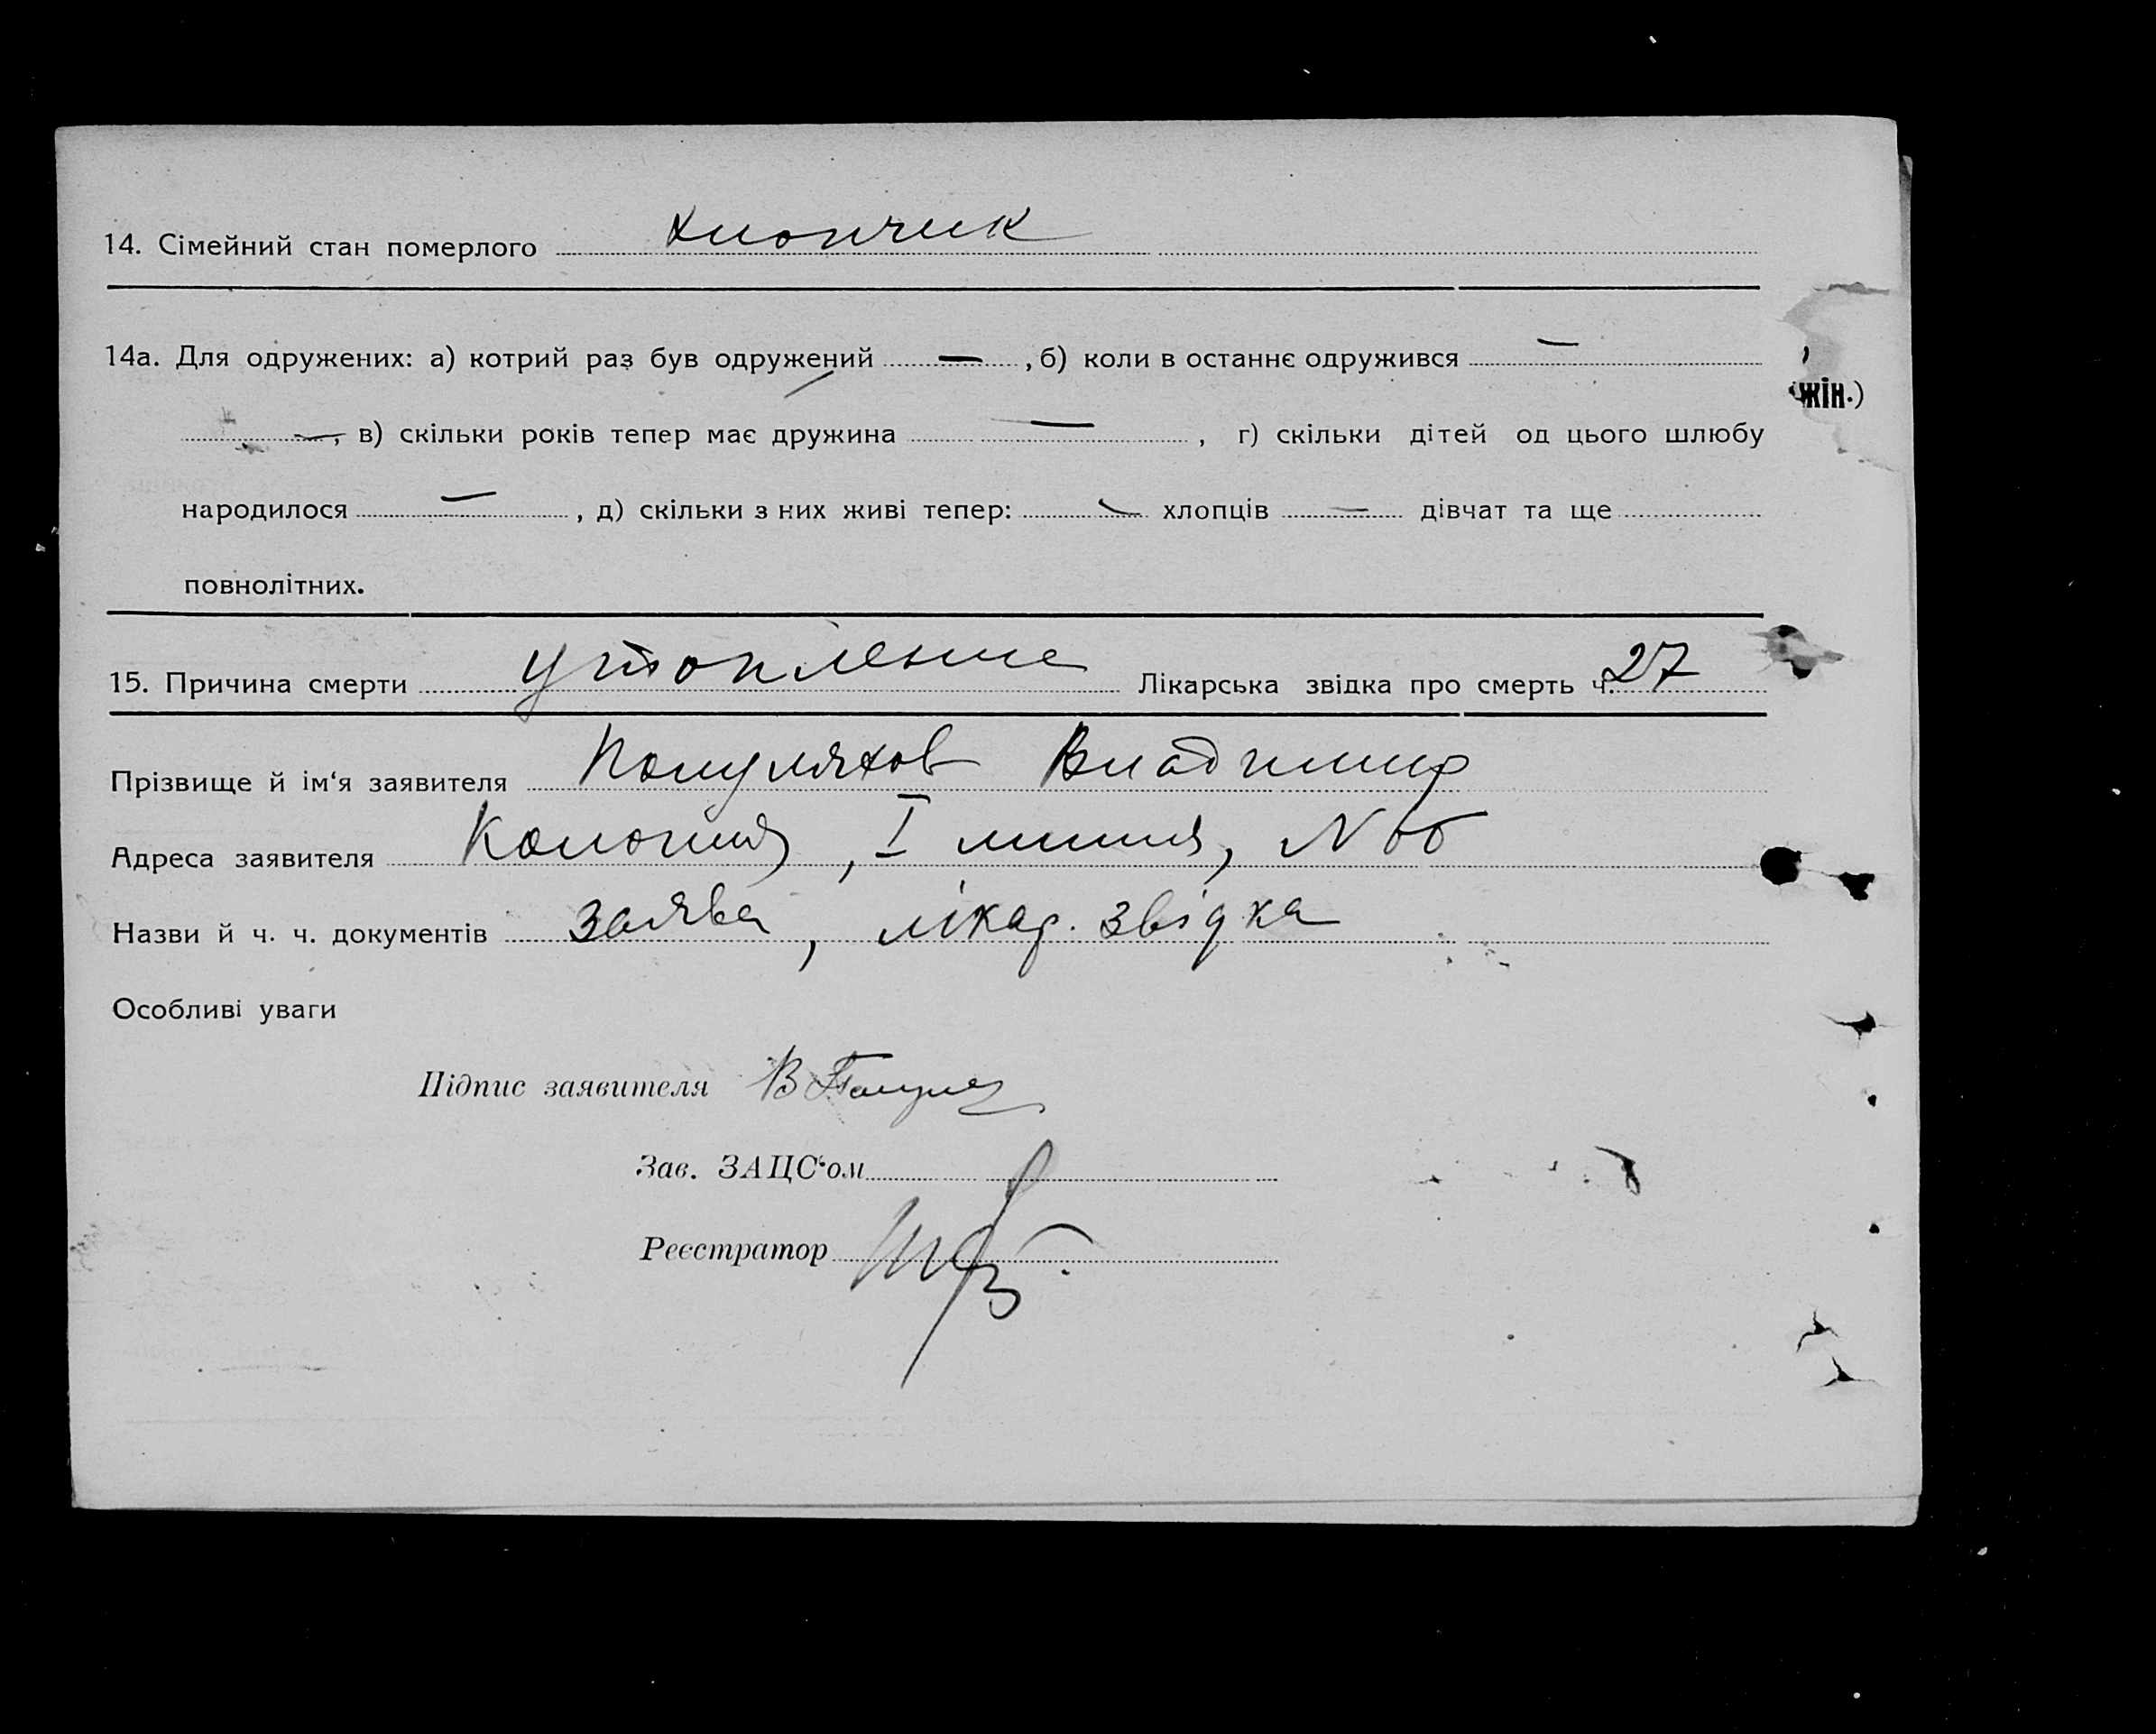 14. Сімейний стан померлого хлопчик
14а. Для одружених: а) котрий раз був одружений —, б) коли в останнє одружився —
—, в) скільки років тепер має дружина —, г) скільки дітей од цього шлюбу
жін.)
народилося —, д) скільки з них живі тепер: — хлопців — дівчат та ще
повнолітних.
15. Причина смерти утопление Лікарська звідка про смерть ч. 27
Прізвище й ім‘я заявителя Владимир
Адреса заявителя Колония, I линия, N 66
Назви й ч. ч. документів заява, лікар. звідка
Особливі уваги
Підпис заявителя
Зав. ЗАЦС‘ом
Реєстратор